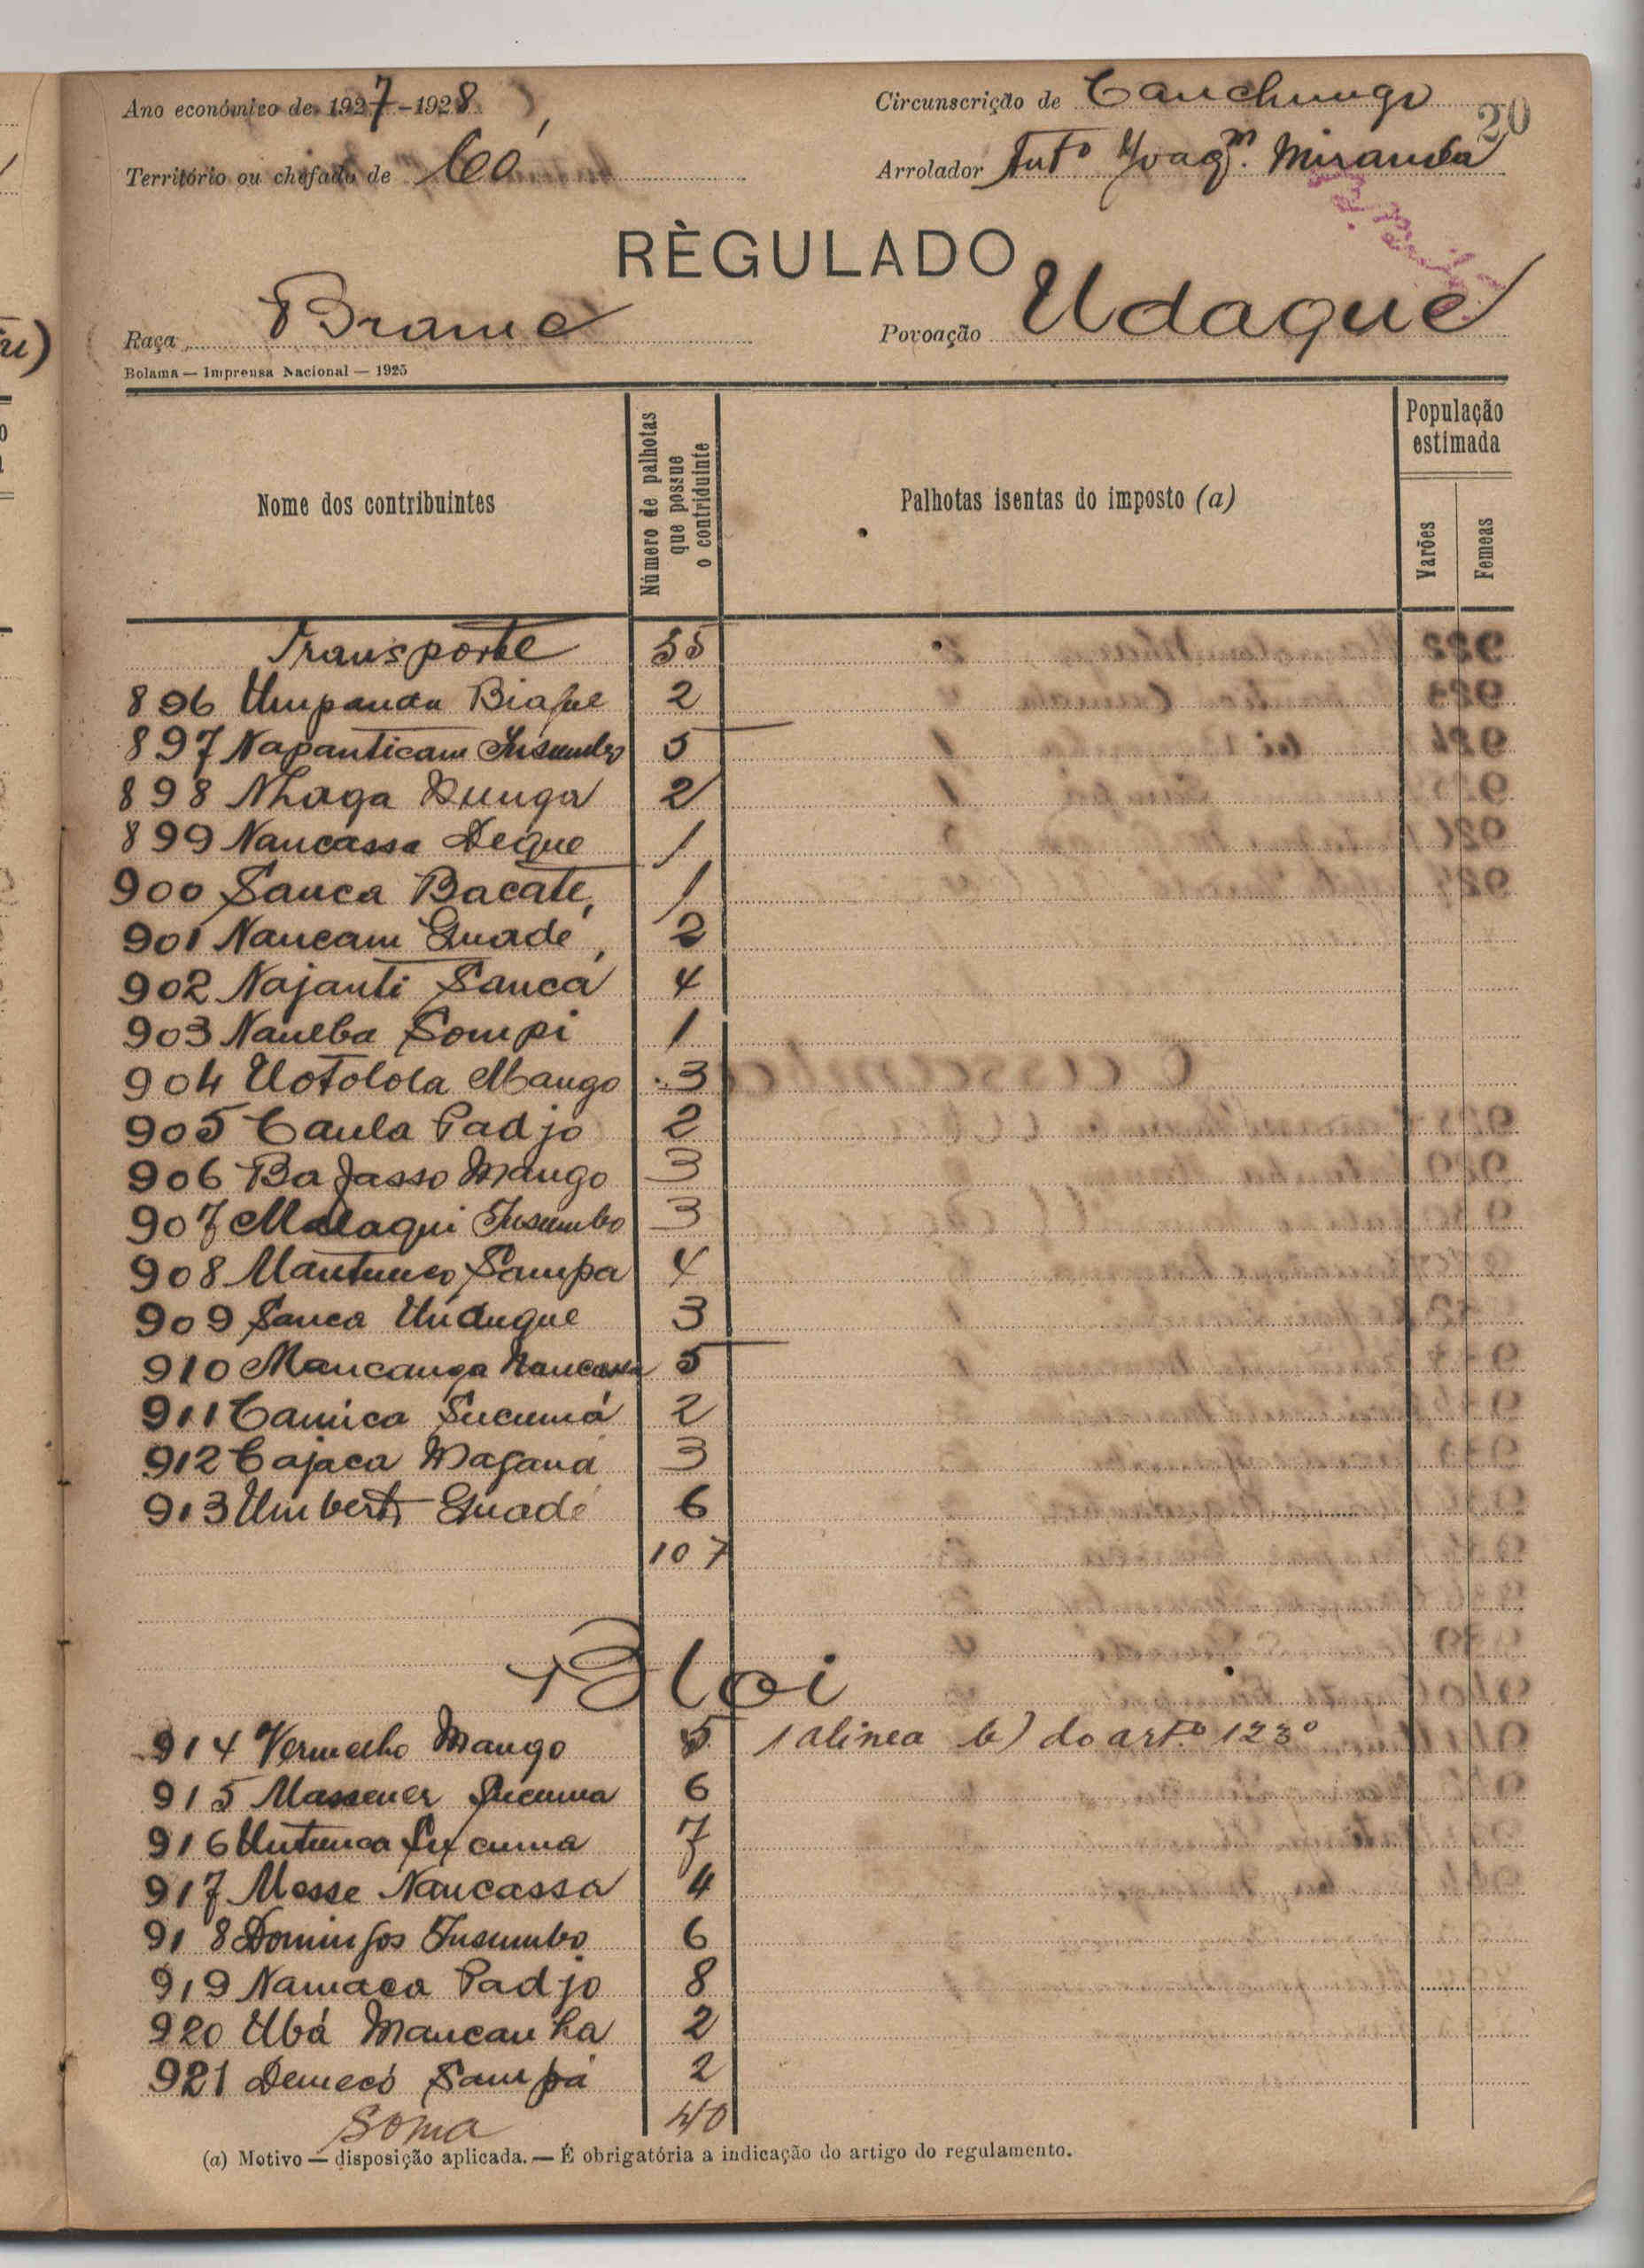 20
Ano económico de 1927-1928
Circunscrição de Canchungo
Território ou chefado de Có
Arrolador Antº Joaqm. Miranda
RÈGULADO
Raça Brame
Povoação Udaque
Bolama — Imprensa Nacional — 1925
Nome dos contribuintes
Número de palhotas que possue o contriduinte
Palhotas isentas do imposto (a)
População estimada
Varões
Femeas
Transporte 55
896 Umpanda Biafue 2
897 Napanticam Insumbo 5
898 Nhaga Dunga 2
899 Naucassa Deque 1
900 Sanca Bacate 1
901 Naucam Quadé 2
902 Najanti Sanca 4
903 Naulba Sompi 1
904 Uotolola Mango 3
905 Caula Padjo 2
906 Bajasso Mango 3
907 Malaqui Insumbo 3
908 Sampa 4
909 Sanca Unduque 3
910 Mancanga Naucassa 5
911 Camica Sucumá 2
912 Cajaca Magana 3
913 Umberto Quadé 6
107
Bloi
914 Vermelho Mango 5 1 alinea b) do artº 123º
915 Sucuma 6
916 Untunca Sucuma 7
917 Messe Naucassa 4
918 Domingos Insumbo 6
919 Namaca Padjo 8
920 Ubá Mancanha 2
921 Demecó Sampá 2
Soma 40
(a) Motivo — disposição aplicada. — É obrigatória a indicação do artigo do regulamento.